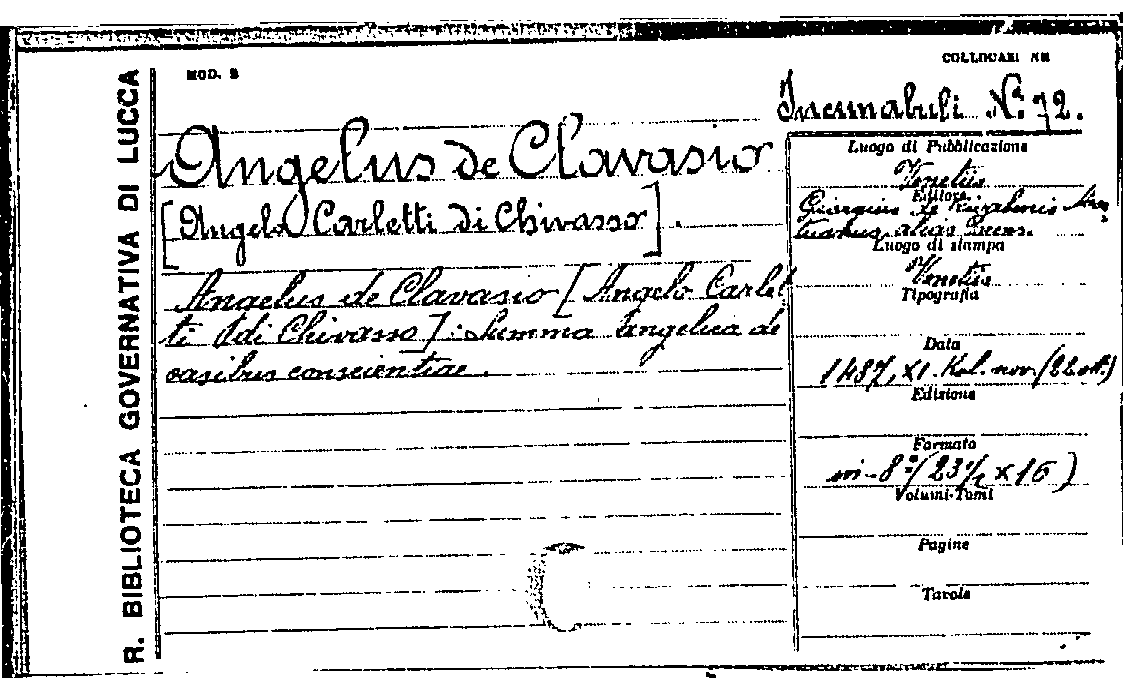 R. BIBLIOTECA GOVERNATIVA DI LUCCA
MOD. B
COLLOCAZIONE
Incunabuli N.° 72.
Angelus de Clavasio
[Angelo Carletti di Chivasso].
Angelus de Clavasio [Angelo Carlet
ti di Chivasso]: Summa angelica de
casibus conscientiae.
Luogo di Pubblicazione
Venetiis
Editore
Georgius de
alias
Luogo di stampa
Venetiis
Tipografia
Data
1487, XI. Kal. nov. (22 ott.)
Edizione
Formato
in-8° (23½ × 16)
Volumi-Tomi
Pagine
Tavole